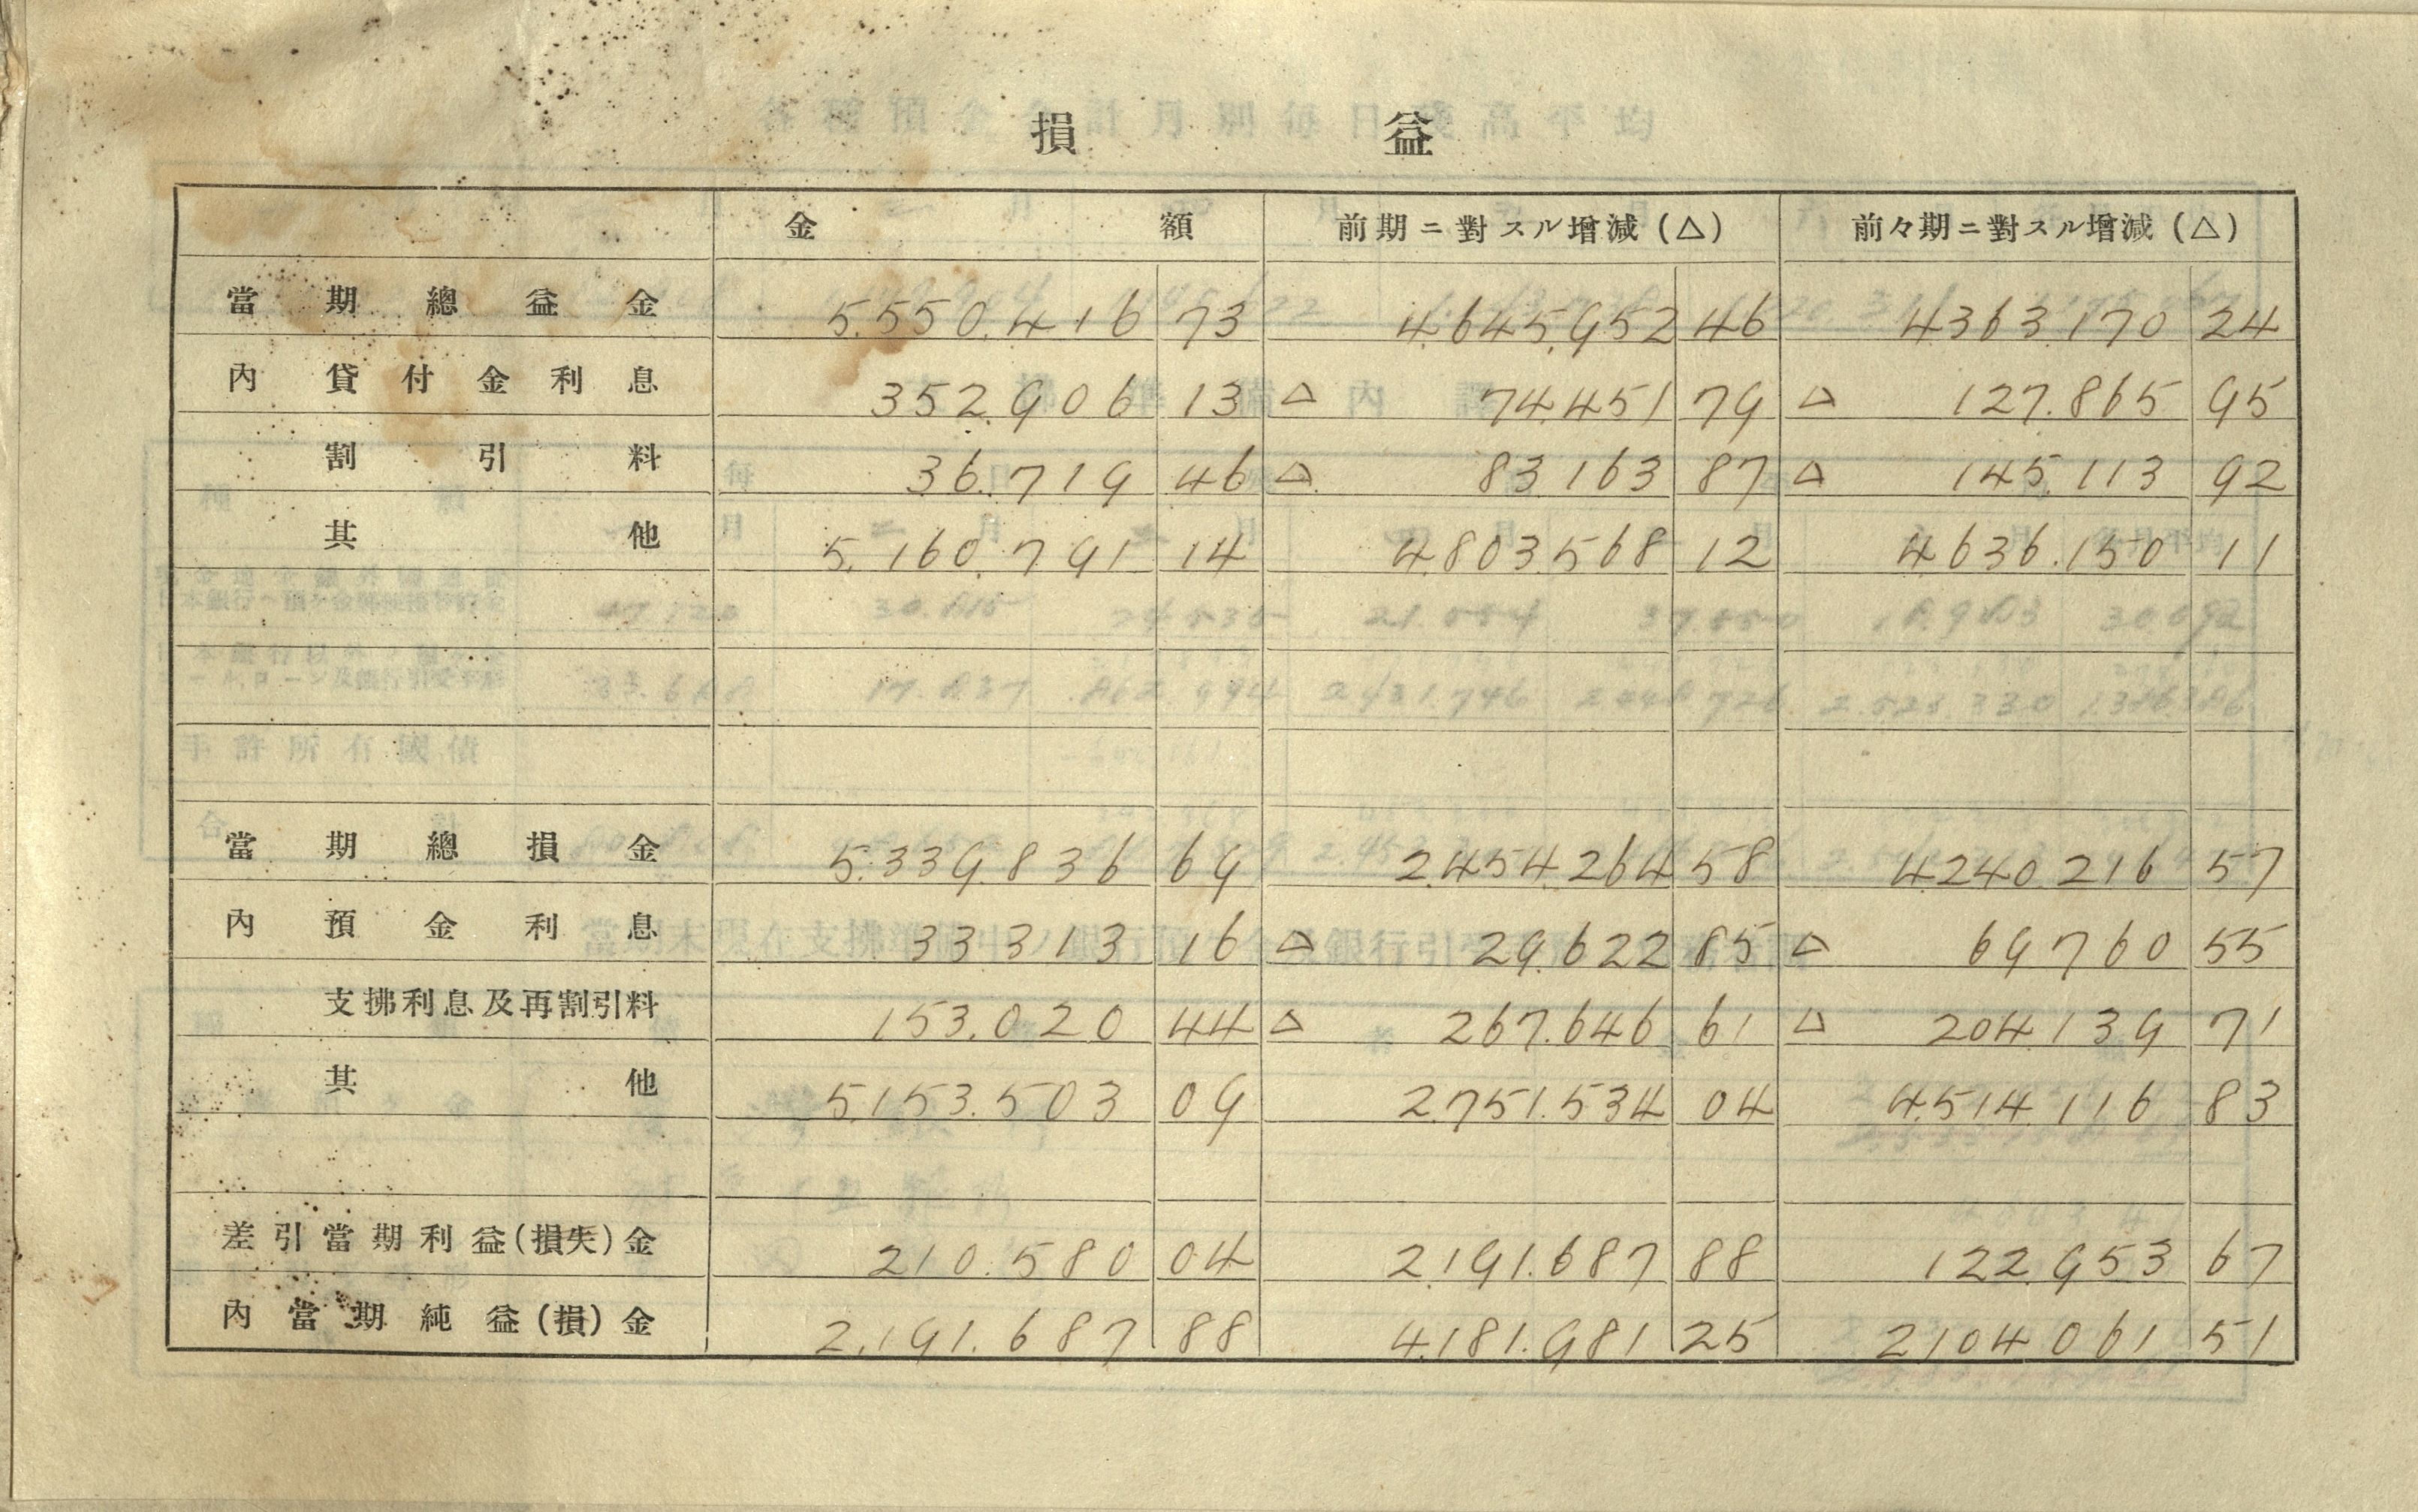 損益
金額 前期ニ對スル增減(△) 前々期ニ對スル增減(△)
當期總益金 5.550.416 73 4.645.952 46 4363.170 24
內貸付金利息 352.906 13 △ 74.451 79 △ 127.865 95
割引料 36.719 46 △ 83163 87 △ 145.113 92
其他 5.160.791 14 4.803.568 12 4.636.150 11
當期總損金 5.339.836 69 2.454.264 58 4.240.216 57
內預金利息 33313 16 △ 29.622 85 △ 69760 55
支拂利息及再割引料 153.020 44 △ 267.646 61 △ 204.139 71
其他 5.153.503 09 2.751.534 04 4.514.116 83
差引當期利益(損失)金 210.580 04 2.191.687 88 122.953 67
內當期純益(損)金 2.191.687 88 4.181.981 25 2104061 51